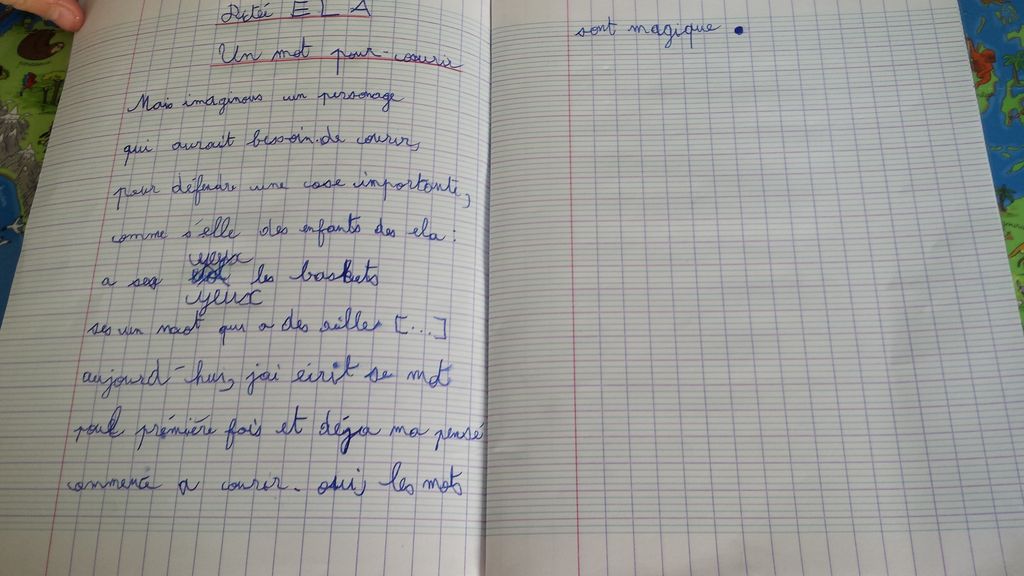 Dictée E L A
Un mot pour courir
Mais imaginous un personage
qui aurait besoin de courir,
pour défendre une case importante,
comme s'elle des enfants des ela :
yeux
a seg les baskets
yeux
ses un maot qui a des aille [...]
aujourd-hui, j'ai écrit se mot
pour première fois et déja ma pensé
commence a courir. oui, les mots
sont magique .